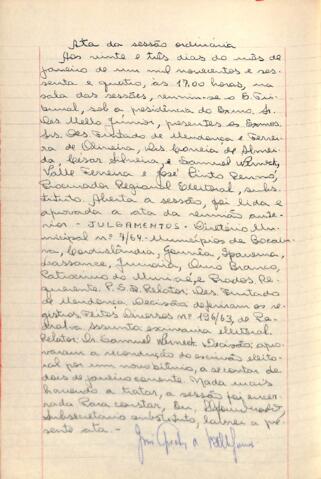 Ata da sessão ordinária
Aos vinte e três dias do mês de
janeiro de um mil novecentos e ses-
senta e quatro, às 17,00 horas, na
sala das sessões, reuniu-se o E. Tri-
bunal, sob a presidência do Exmo. Sr.
Des. Mello Júnior, presentes os Exmos.
Srs. Des. Furtado de Mendonça e Ferrei-
ra de Oliveira, Drs. Correia de Almei-
da, Cesar Silveira, e Samuel Werneck,
Valle Ferreira e José Pinto Renno,
Procurador Regional Eleitoral, subs-
tituto. Aberta a sessão, foi lida e
aprovada a ata da reunião ante-
rior - JULGAMENTOS - Diretório Mu-
nicipal nº 7/64 - Municípios de Bocaiu-
va, Cordislândia, Ipanema,
Lassance, Ouro Branco,
Patrocínio do Muriaé, e Prados. Re-
querente: P.S.D. Relator: Des. Furtado
de Mendonça. Decisão: deferiram os re-
gistros. Feitos Diversos nº 196/63, de Pe-
dralva. Assunto: escrivania eleitoral.
Relator: Dr. Samuel Werneck. Decisão: apro-
varam a recondução do escrivão eleito-
ral por um novo biênio, a contar de
dois de janeiro corrente. Nada mais
havendo a tratar, a sessão foi encer-
rada. Para constar, Eu,
Subsecretário substituto, lavrei a pre-
sente ata. -